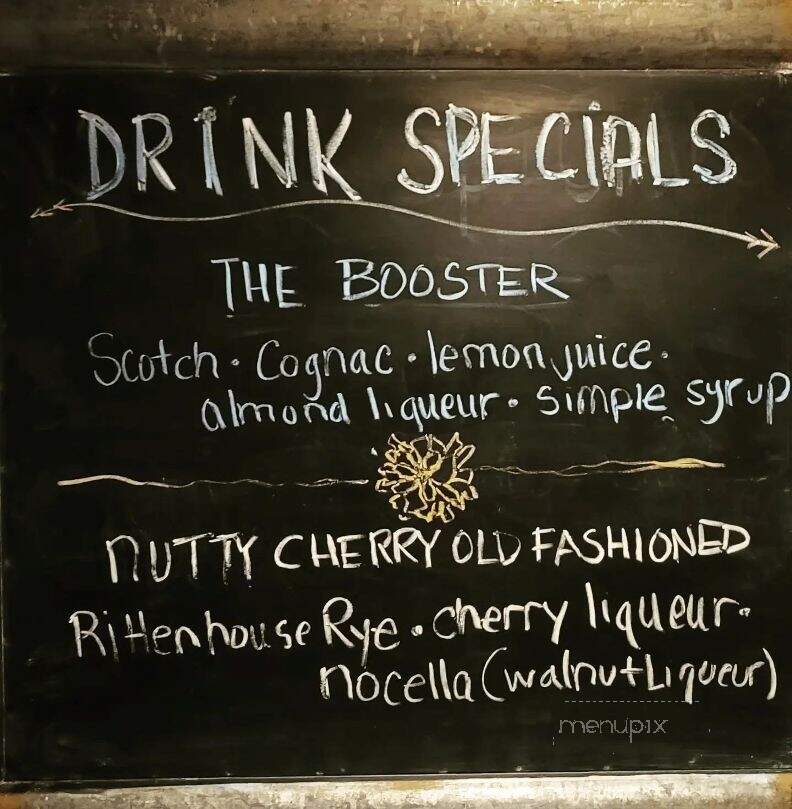 DRINK SPECIALS
THE BOOSTER
Scotch • Cognac • lemon juice •
almond liqueur • simple syrup
NUTTY CHERRY OLD FASHIONED
Rittenhouse Rye • cherry liqueur •
nocella (walnut Liqueur)
menupix